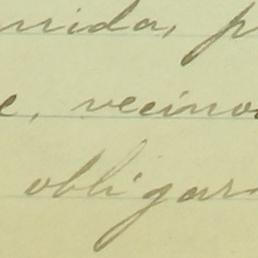 rrida, p
e, vecinos
obligar